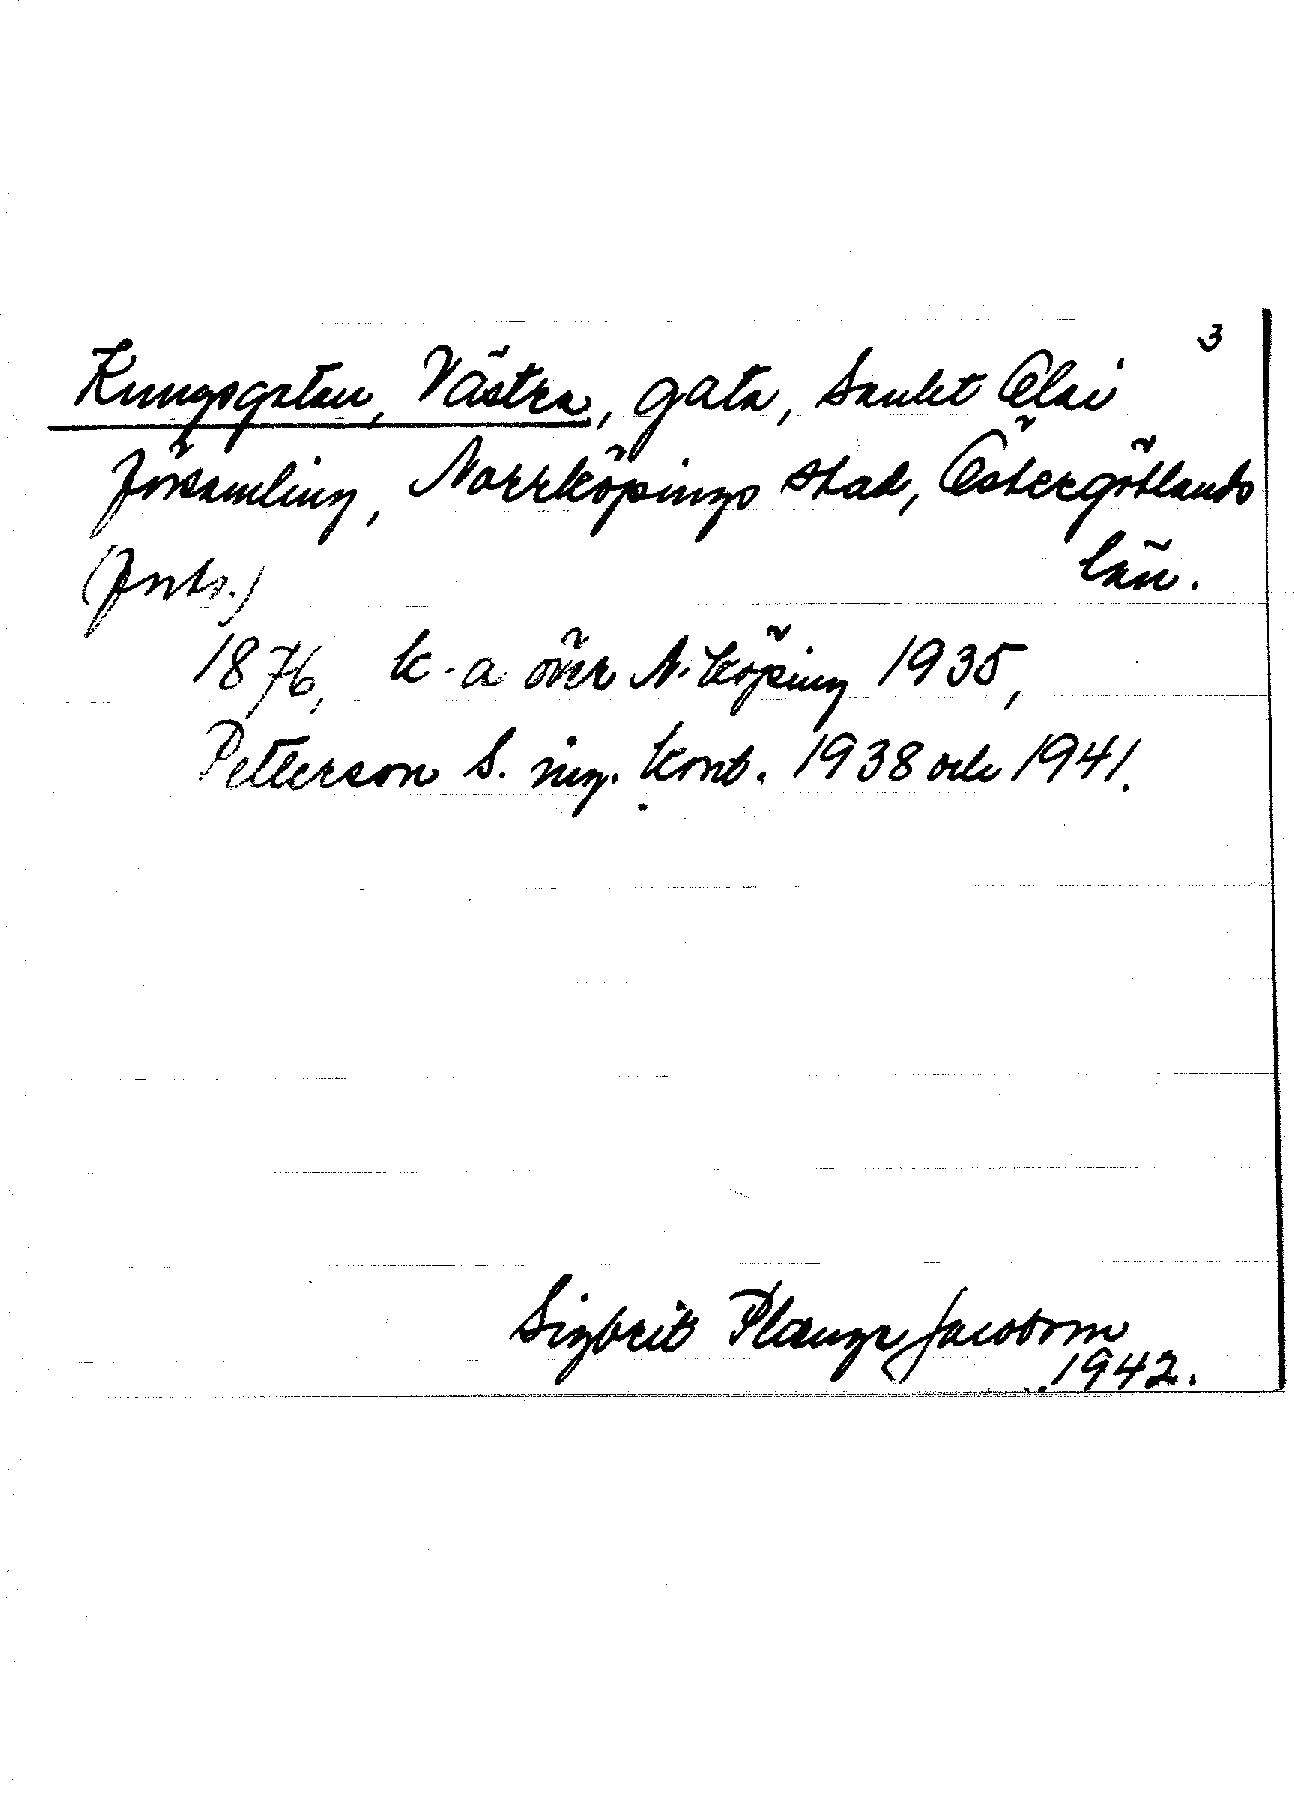 3
Kungsgatan, Västra, gata, Sankt Olai
församling, Norrköpings stad, Östergötlands
län.
(forts.)
1876, k-a över N.köping 1935,
Petterson S. ing. kont. 1938 och 1941.
Sigbrit Plænge Jacobson
1942.